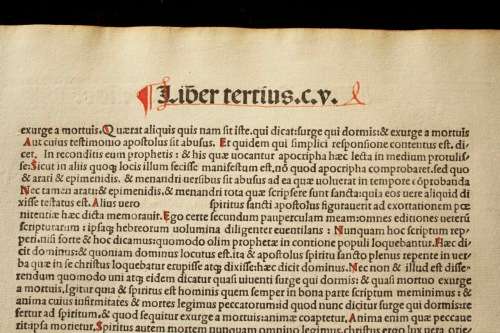 ¶Liber tertius.c.v.
exurge a mortuis. Quærat aliquis quis nam sit iste. qui dicat: surge qui dormis: & exurge a mortuis
Aut cuius testimonio apostolus sit abusus. Et quidem qui simplici responsione contentus est. di
cet. In reconditis eum prophetis: & his quæ vocantur apocripha hæc lecta in medium protulis
se: Sicut in aliis quoq̃ locis illum fecisse manifestum est, nõ quod apocripha comprobaret. sed quod
& arati & epimenidis. & menandri versibus sit abusus ad ea quæ voluerat in tempore cõprobanda
Nec tamen arati: & epimenidis, & menandri tota quæ scripsere sunt sancta: quia eos vere aliquid di
xisse testatus est. Alius vero spiritus sancti apostolus figurauerit ad exortationem pœ
nitentiæ hæc dicta memorauit. Ego certe secundum pauperculam meam: omnes editiones veterũ
scripturarum: ipsaq̃ hebreorum volumina diligenter euentilans: Nunquam hoc scriptum rep
peri. nisi forte & hoc dicamus: quomodo olim prophetæ in contione populi loquebantur. Hæc di
cit dominus: & quoniam dominus locutus est. ita & apostolus spiritu sancto plenus repente in ver
ba quæ in se christus loquebatur erupisse atq̃ dixisse: hæc dicit dominus. Nec non & illud est disse-
rendum quomodo uni atq̃ eidem dicatur quasi uiuenti surge qui dormis: & quasi mortuo exurge
a mortuis. Igitur quia & spiritus est hominis quem semper in bona parte scriptum meminimus: &
anima cuius infirmitates & mortes legimus peccatorum: id quod nunc dicitur surge qui dormis
anime captetur. Anima enim quæ peccauerit
ritur. Spiritus autem mortem nunquam omnino